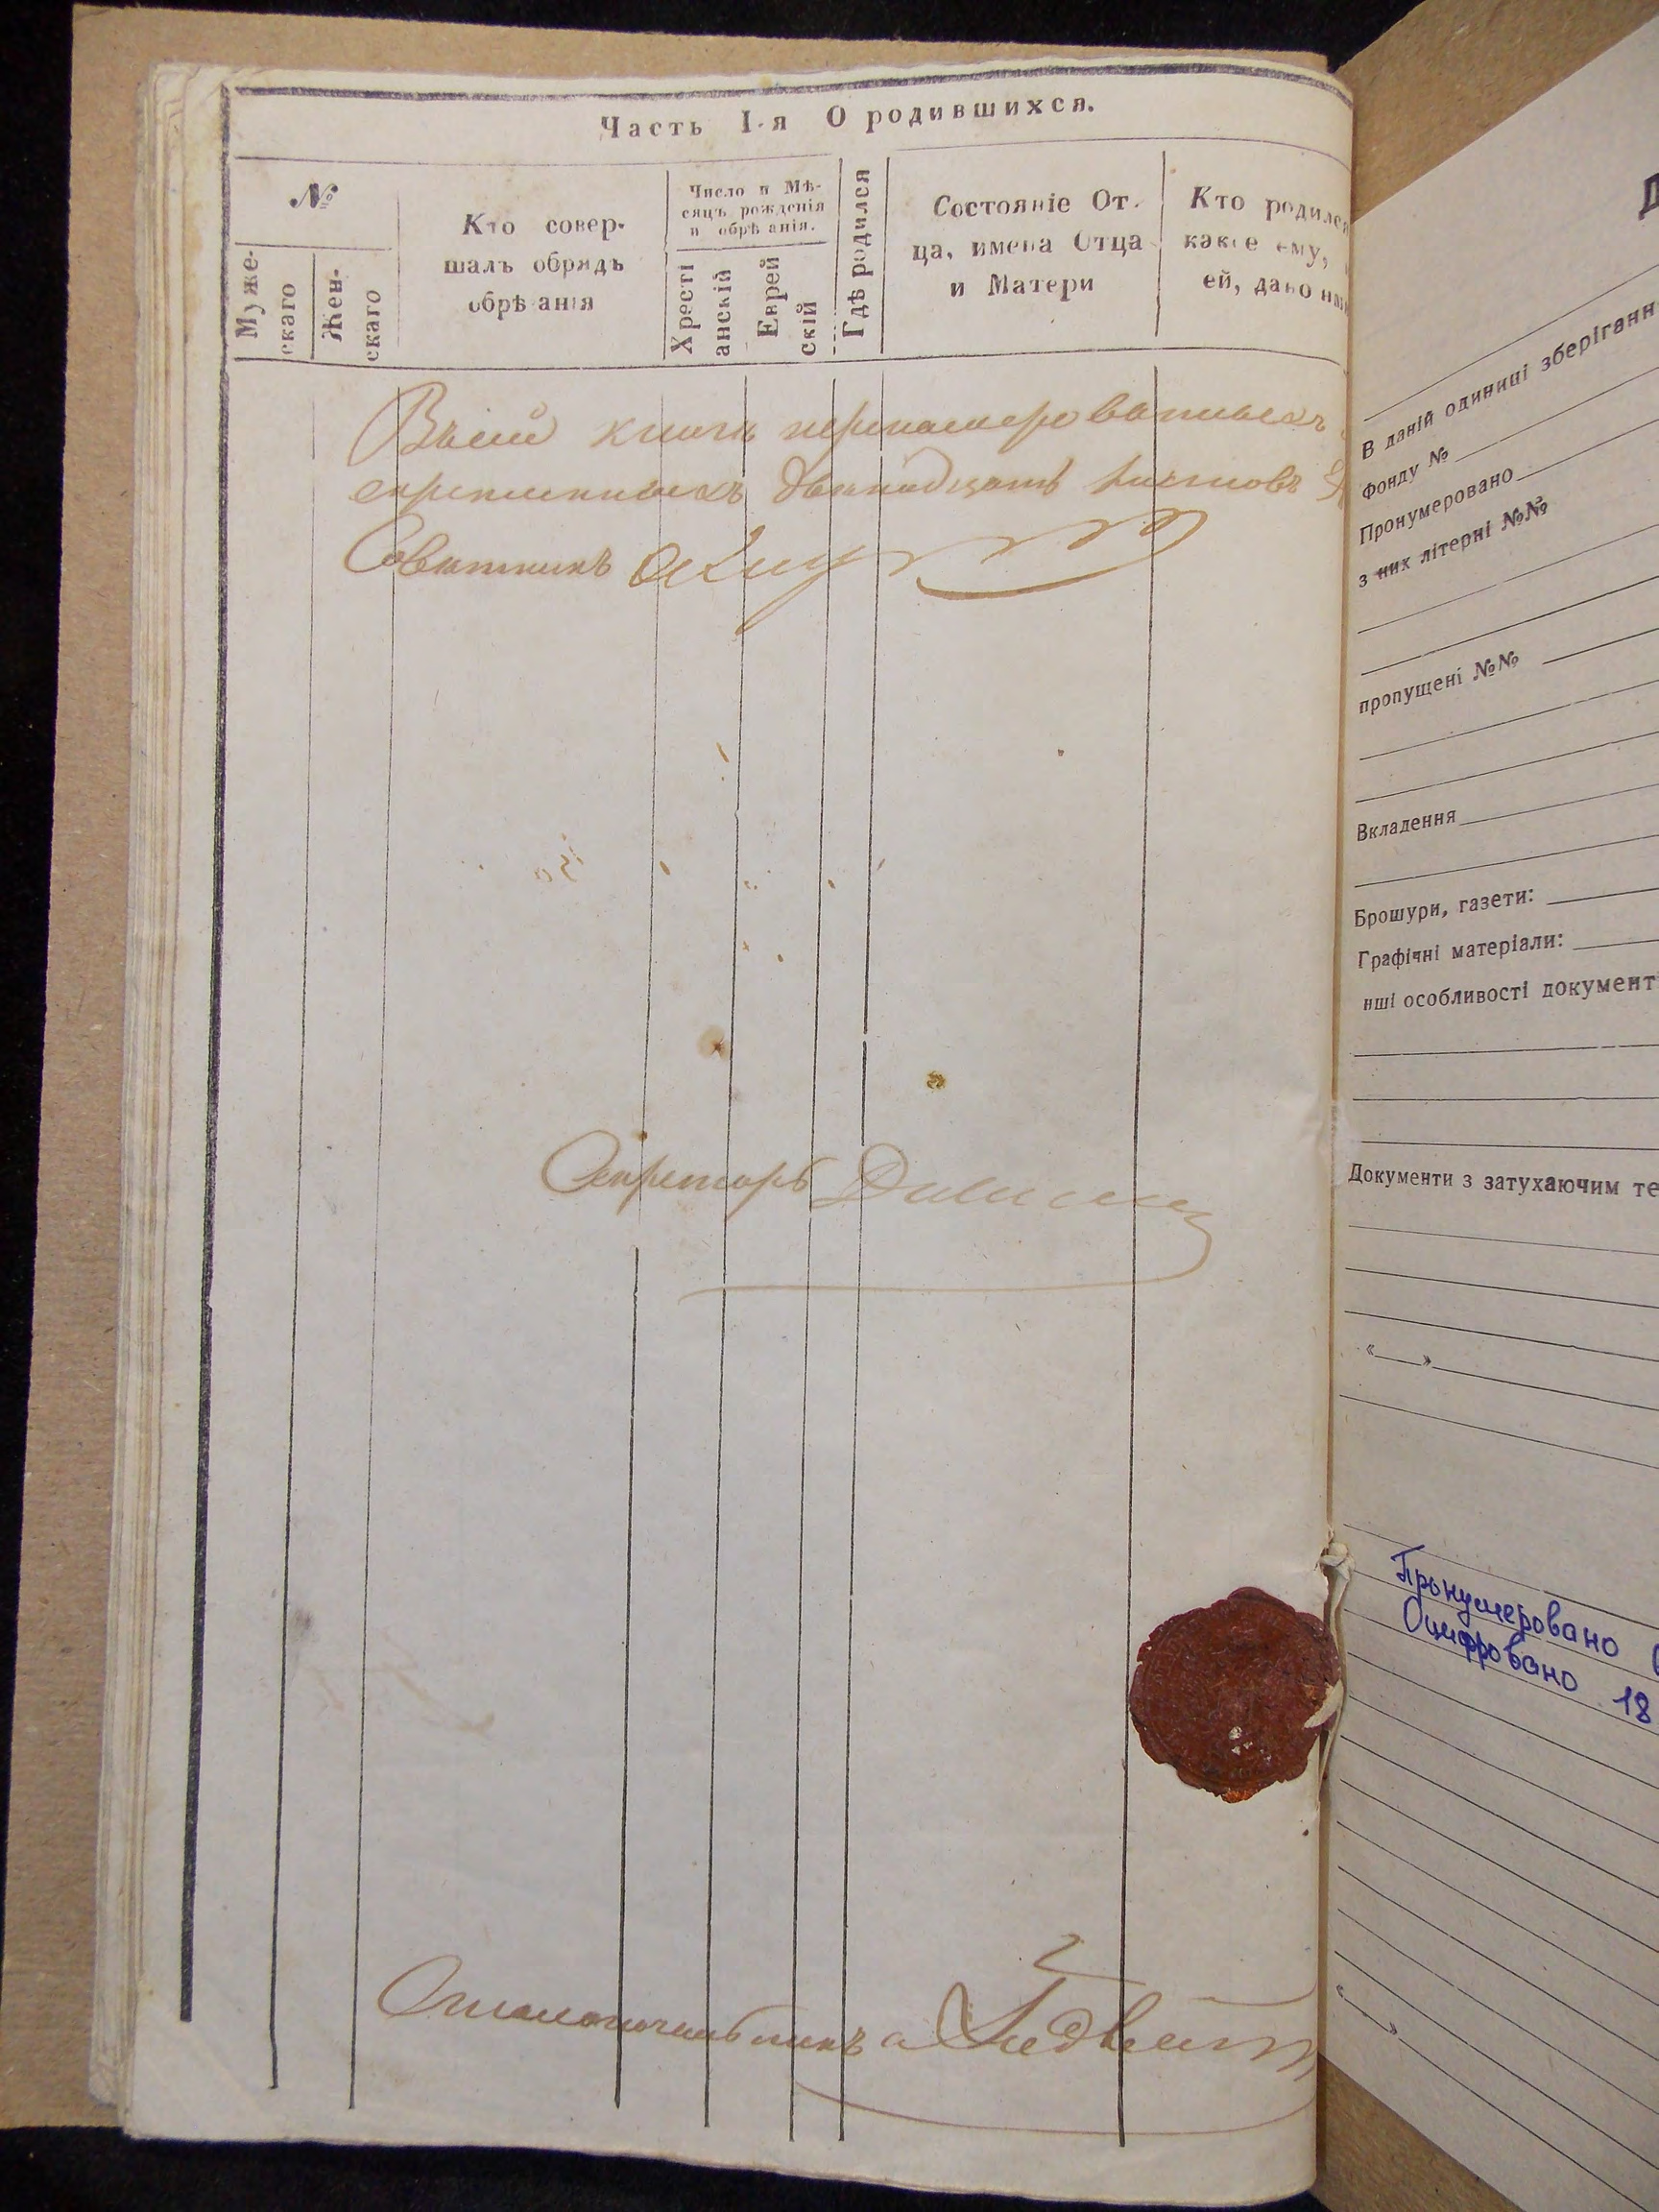 Часть I-я О родившихся.
№
Муже-
скаго
Жен-
скаго
Кто совер-
шалъ обрядъ
обрѣзанія
Число и Мѣ-
сяцъ рожденія
и обрѣзанія.
Хрестi
анскiй
Еврей
скій
Гдѣ родился
Состояніе От-
ца, имена Отца
и Матери
Кто родился
какое ему,
ей, дано
Въ сей книгѣ перенумерованныхъ
скрепленныхъ двенадцать листовъ
Советникъ
Секретарь
Столоначальникъ
В даній одиниці зберіганн
Фонду №
Пронумеровано
з них літерні №№
пропущені №№
Вкладення
Брошури, газети:
Графічні матеріали:
нші особливості документ
Документи з затухаючим те
« »
Пронумеровано
Оцифровано 18